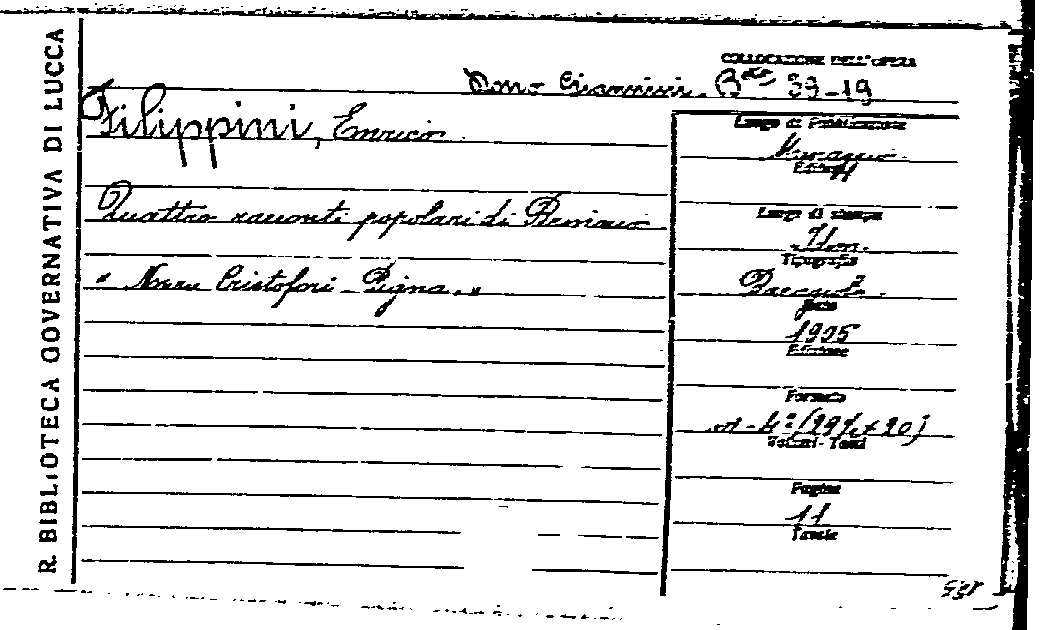 R. BIBLIOTECA GOVERNATIVA DI LUCCA
COLLOCAZIONE DELL'OPERA
Dono Giannini. B 39-19
Filippini, Enrico
Quattro racconti popolari di
" Cristofori - Pigna. "
Luogo di Pubblicazione
Editore
Luogo di stampa
Tipografia
Data
1905
Edizione
Formato
4°
Volumi - Tomi
Pagine
11
Tavole